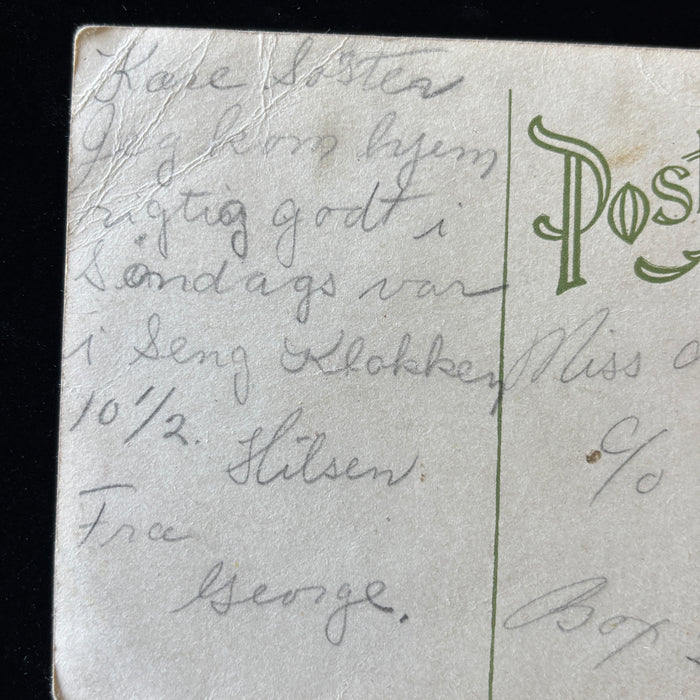 Kare Søster
Jeg kom hjem
rigtig godt i
Søndags var
i Seng Klokken
10 1/2.
Hilsen
Fra
George.
Post
Miss
c/o
Box